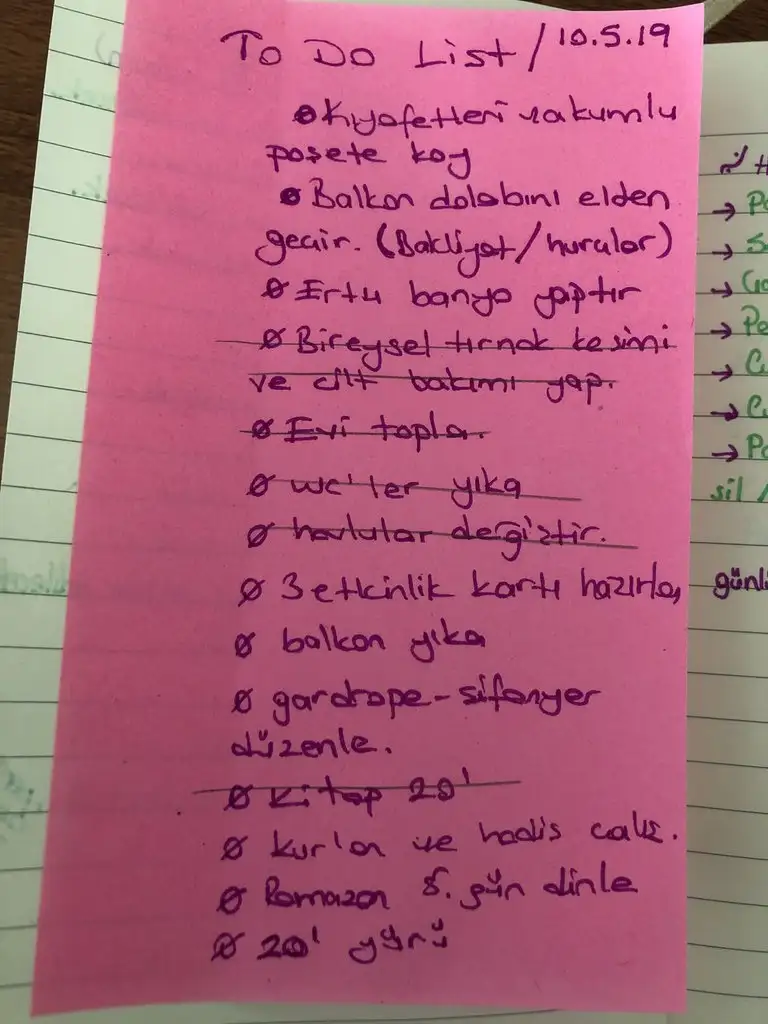 To Do List / 10.5.19
Kıyafetleri vakumlu
poşete koy
Balkon dolabını elden
geçir. (Bakliyat/hurular)
Ertu banyo yaptır
Bireysel tırnak kesimi
ve cilt bakımı yap.
Evi topla.
wc'ler yıka
havlular değiştir.
3 etkinlik kartı hazırla,
balkon yıka
gardrope-şifonyer
düzenle.
Kitap 20'
Kur'an ve hadis çalış.
Ramazan 5. gün dinle
20' yürü
→ Pa
→ S
→
→ Pe
→ C
→
→ Pa
sil /
günl